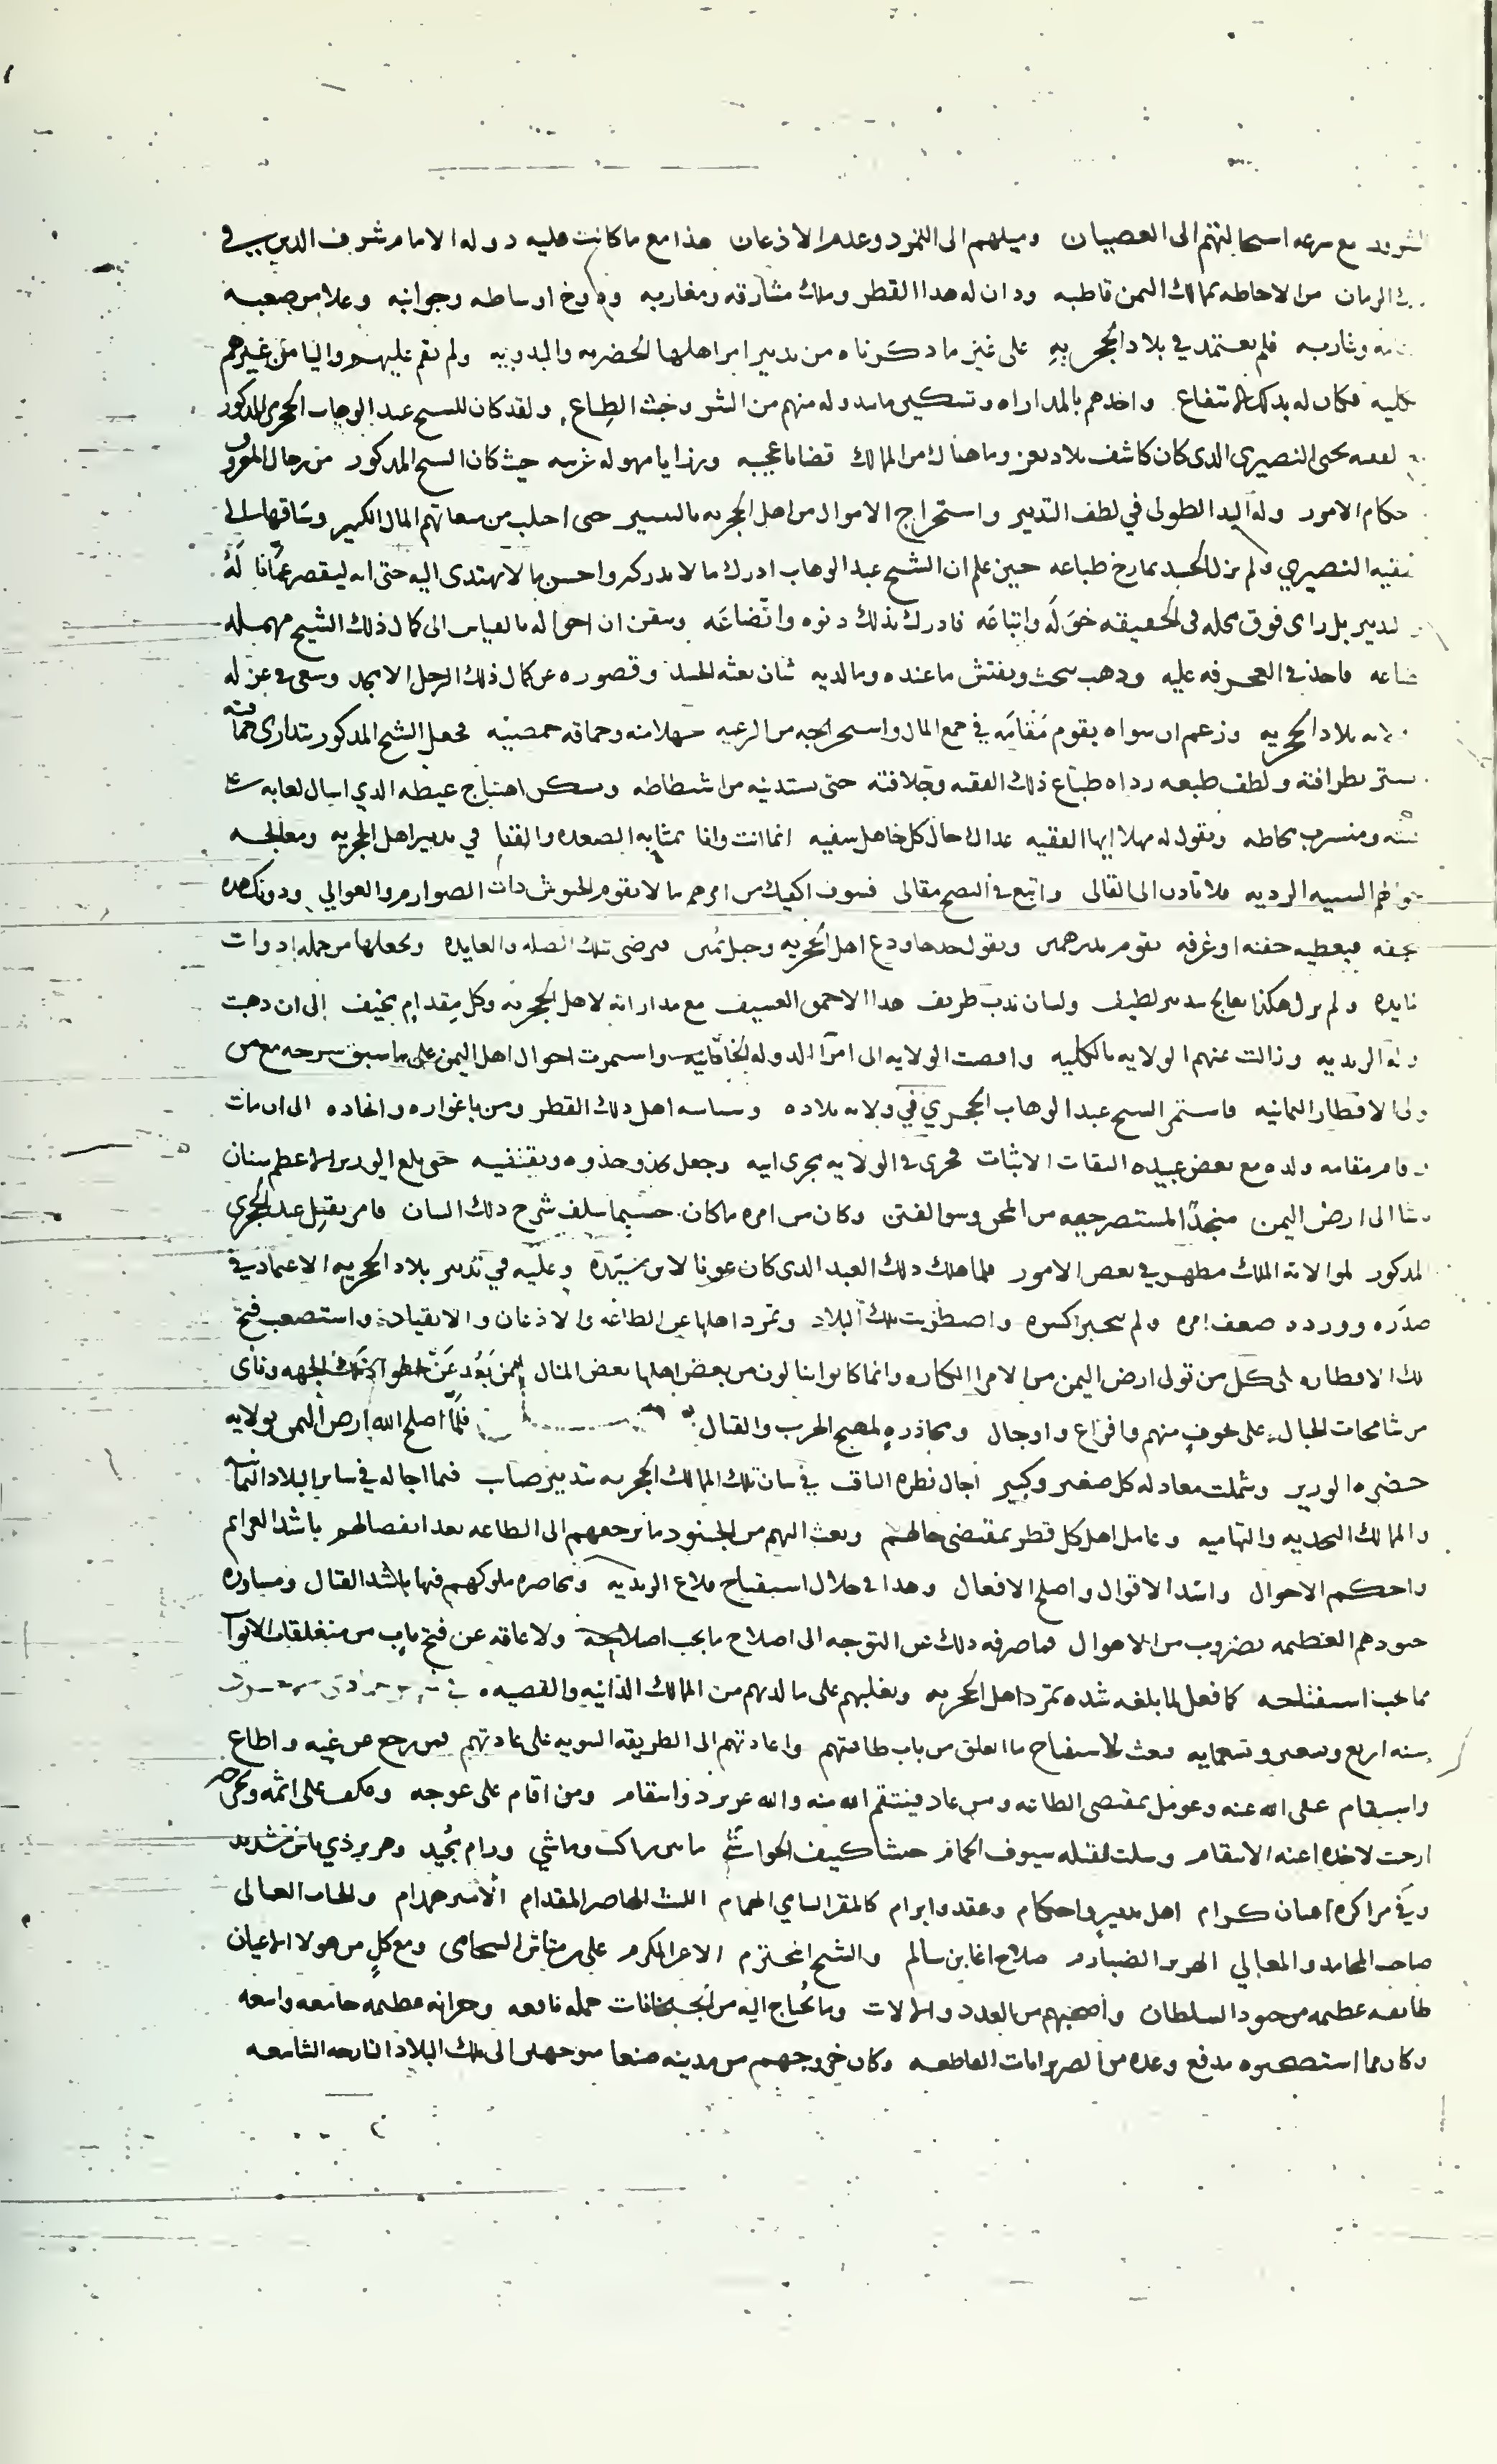 الشرود مع سرعه استحالتهم الى العصيان وميلهم الى التمرد وعدم الاذعان هذا مع ما كانت عليه دوله الامام شرف الدين في
الزمان من الاحاطه بممالك اليمن قاطبه ودان له هدا القطر وملك مشارقه ومغاربه ودوخ اوساطه وجوانبه وعلا من صعبه
وغاربه فلم يعتمد في بلاد الحجريه على غير ما دكرناه من تدبير امر اهلها الحضريه والبدويه ولم يقم عليهم واليا من غيرهم
كليه فكان له بدلك الانتفاع واخدهم بالمداراه وتسكين ما يبدو له منهم من الشر وخبث الطباع ولقد كان للشيح عبد الوهاب الحجري المدكور
لفقيه يحيى النصيري الدى كان كاشف بلاد تعز وما هنالك من الممالك قضايا عجيبه ورزايا مهوله غريبه حيث كان الشيح المدكور من رجال المعروف
حكام الامور وله اليد الطولى في لطف التدبير واستخراج الاموال من اهل الحجريه بالتيسير حتى احلب من سعاتهم المال الكثير وساقها الى
لفقيه النصيري ولم يزل الحسد يمازح طباعه حين علم ان الشيخ عبد الوهاب ادرك ما لا يدركه واحسن ما لا يهتدى اليه حتى انه ليقصر عما له
لتدبير بل راى فوق محله فى الحقيقه خوله واتباعه فادرك بذلك دنوه واتضاعه وتيقن ان احواله بالقياس الى كمال ذلك الشيخ مهمله
ضاعه فاخذ في العجرفه عليه ودهب يبحث ويفتش ما عنده وما لديه شان بعثه الحسد وقصوره عن كمال ذلك الرجل الامجد وسعى في عزله
بلاد الحجريه وزعم ان سواه يقوم مقامه في جمع المال واستخراجه من الرعيه جهلا منه وحماقه فجعل الشيح المدكور يتدارى حماقته
يستر بظرافته ولطف طبعه رداه طباع ذلك الفقيه وجلافته حتى يستدنيه من اشطاطه ويسكن اهتياج غيظه الدي اسال لعابه على
ويقول له مهلا ايها الفقيه عداك حال كل جاهل سفيه انما انت وانا بمثابه الصعده والقنا في تدبير اهل الحجريه ومعالجه
السيئه الرديه فلا تأذن الى القالى واتبع في النصح مقالى فسوف اكفيك من امرهم ما لا يقوم الجيوش ذات الصوارم والعوالي ودونك هده
فيعطيه حفنه او غرفه تقوم بدرهمين ويقول خدها ودع اهل الحجريه وحبل فيرضى بتلك الصله والعايده ويجعلها من جمله ادوات
فايده ولم يزل هكذا يعالج بتدبير لطيف ولسان ندب ظريف هدا الاحمق العسيف مع مداراته لاهل الحجريه وكل مقدام مخيف الى ان دهبت
دوله الزيديه وزالت عنهم الولايه بالكليه وافضت الولايه الى امرا الدوله الخاقانيه واستمرت احوال اهل اليمن على ما سبق شرحه مع من
ولي الاقطار اليمانيه فاستمر الشيح عبد الوهاب الحجري في ولايه بلاده وسياسه اهل دلك القطر ومن باغواره وانجاده الى ان مات
وقام مقامه ولده مع بعض عبيده الثقات الاثبات فجرى في الولايه مجرى ابيه وجعل يحذو حذوه ويقتفيه حتى بلغ الوزير الاعظم سنان
باشا الى ارض اليمن منجدا لمستصرخيه من المحن وسو الفتن وكان من امره ما كان حسبما سلف شرح دلك البيان فامر بقتل عبد الحجري
المدكور لموالاته الملك مطهر في بعض الامور فلما هلك دلك العبد الدى كان عونا لابن سيده وعليه في تدبير بلاد الحجريه الاعتماد في
صدره وورده ضعف امره ولم ينجبر كسره واضطربت تلك البلاد وتمرد اهلها عن الطاعه والاذعان والانقياد واستصعب فتح
تلك الاقطار على كل من تولى ارض اليمن من الامرا الكبار وانما كانوا ينالون من بعض اهلها بعض المنال لمن بعد عن اطواد تلك الجهه ونأى
من شامخات الجبال على خوف منهم وافزاع واوجال ومحاذره لهيج الحرب والقتال فلما اصلح الله ارض اليمن بولايه
حضره الوزير وشملت معادله كل صغير وكبير اجال نظره الثاقب في شان تلك الممالك الحجريه بتدبير صايب فيما اجاله في ساير البلاد اليمانيه
والممالك النجديه والتهاميه وعامل اهل كل قطر بمقتضى حالهم وبعث اليهم من الجنود ما يرجعهم الى الطاعه بعد انفصالهم باشد العزايم
واحكم الاحوال واسد الاقوال واصلح الافعال وهدا في خلال استفتاح قلاع الزيديه ومحاصره ملوكهم فيها باشد القتال ومساوره
جنودهم العظيمه بضروب من الاهوال فما صرفه دلك عن التوجه الى اصلاح ما يجب اصلاحه ولا عاقه عن فتح باب من منغلقات الابواب
مما يجب استفتاحه كما فعل لما بلغه شده تمرد اهل الحجريه وتغلبهم على ما لديهم من الممالك الدانيه والقصيه في
سنه اربع وتسعين وتسعمايه فبعث لاستفتاح ما انغلق من باب طاعتهم واعادتهم الى الطريقه السويه على عادتهم فمن رجع عن غيه واطاع
واستقام عفى الله عنه وعومل بمقتضى الطاعه ومن عاد فينتقم الله منه والله عزيز ذو انتقام ومن اقام على عوجه وعكف على اثمه
ارخت لاخذه اعنه الانتقام وسلت لقتله سيوف الحمام جيشا كثيف الحواشي ما بين راكب وماشي ورام مجيد وهزبر ذي باس شديد
وفي مراكزه اعيان كرام اهل تدبير واحكام وعقد وابرام كالمقر السامي الهمام الليث الهاصر المقدام الامير همدام والجناب العالى
صاحب المحامد والمعالي الهزبر الضبارم صلاح اغا بن سالم والشيخ المحترم الاعز المكرم على بن متاش السحامى ومع كل من هولا الاعيان
طايفه عظيمه من جنود السلطان واصحبهم من العدد والالات وما يحتاج اليه من الجبخانات جمله نافعه وخزانه عظيمه جامعه واسعه
وكان مما استصحبوه مدفع وعده من الضربزانات القاطعه وكان خروجهم من مدينه صنعا متوجهين الى تلك البلاد النازحه الشاسعه